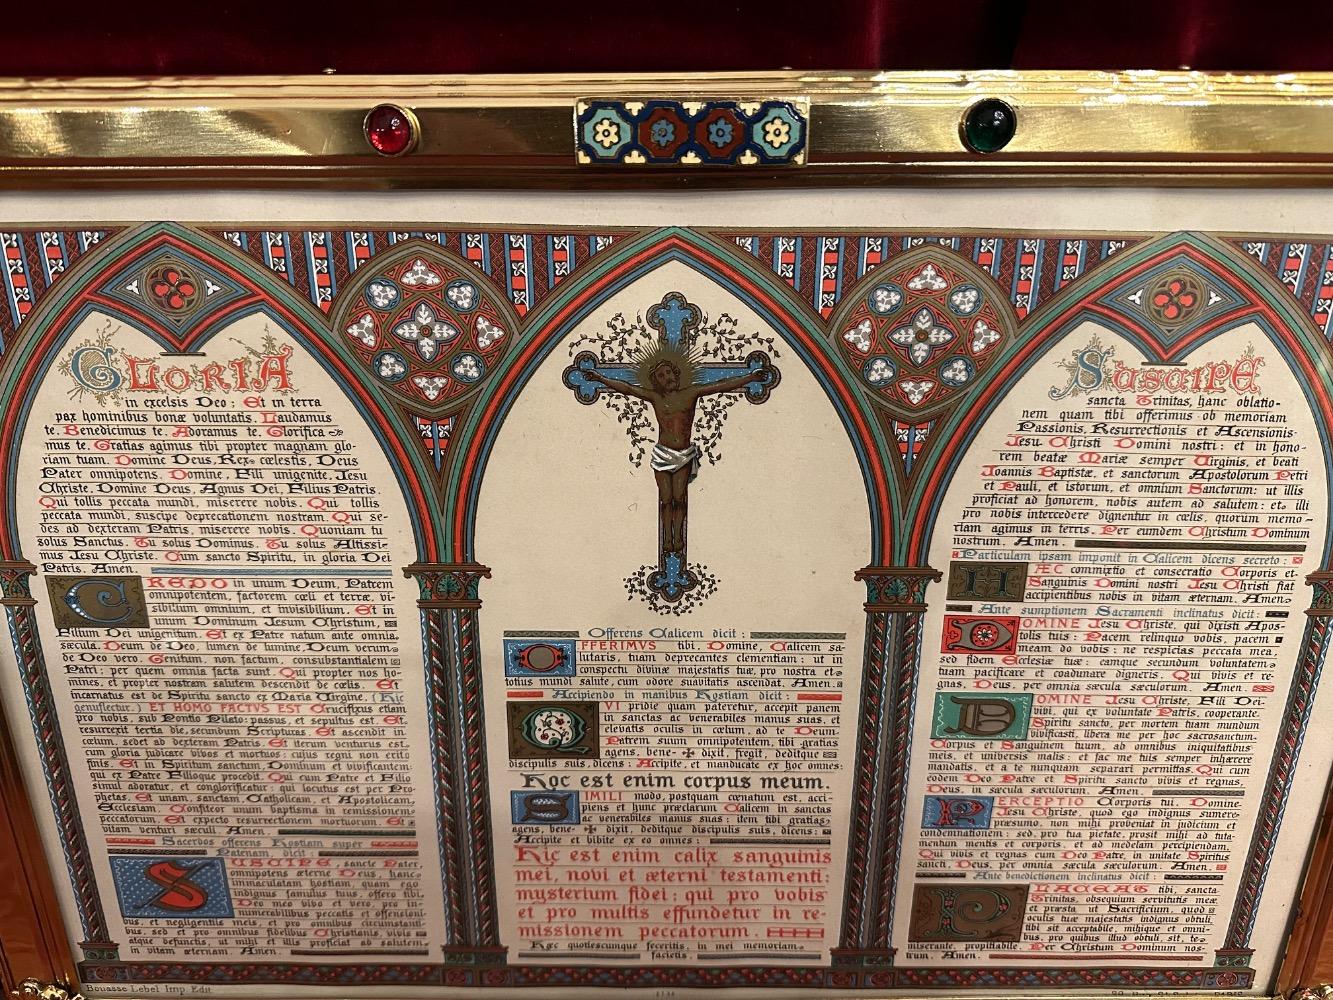 GLORIA
in excelsis Deo; Et in terra
pax hominibus bonæ voluntatis. Laudamus
te. Benedicimus te. Adoramus te. Glorifica-
mus te. Gratias agimus tibi propter magnam glo-
riam tuam. Domine Deus, Rex cœlestis, Deus
Pater omnipotens. Domine, Fili unigenite, Jesu
Christe. Domine Deus, Agnus Dei, Filius Patris.
Qui tollis peccata mundi, miserere nobis. Qui tollis
peccata mundi, suscipe deprecationem nostram. Qui se-
des ad dexteram Patris, miserere nobis. Quoniam tu
solus Sanctus. Tu solus Dominus. Tu solus Altissi-
mus Jesu Christe. Cum sancto Spiritu, in gloria Dei
Patris. Amen.
CREDO in unum Deum, Patrem
omnipotentem, factorem cœli et terræ, vi-
sibilium omnium, et invisibilium. Et in
unum Dominum Jesum Christum,
Filium Dei unigenitum. Et ex Patre natum ante omnia
sæcula. Deum de Deo, lumen de lumine, Deum verum
de Deo vero. Genitum, non factum, consubstantialem
Patri: per quem omnia facta sunt. Qui propter nos ho-
mines, et propter nostram salutem descendit de cœlis. Et
incarnatus est de Spiritu sancto ex Maria Virgine. (Hic
genuflectitur.) ET HOMO FACTVS EST Crucifixus etiam
pro nobis, sub Pontio Pilato: passus, et sepultus est. Et
resurrexit tertia die, secundum Scripturas. Et ascendit in
cœlum, sedet ad dexteram Patris. Et iterum venturus est
cum gloria judicare vivos et mortuos: cujus regni non erit
finis. Et in Spiritum sanctum, Dominum et vivificantem:
qui ex Patre Filioque procedit. Qui cum Patre et Filio
simul adoratur, et conglorificatur: qui locutus est per Pro-
phetas. Et unam, sanctam, Catholicam, et Apostolicam,
Ecclesiam. Confiteor unum baptisma in remissionem
peccatorum. Et expecto resurrectionem mortuorum. Et
vitam venturi sæculi. Amen.
Sacerdos offerens Hostiam super
Patenam, dicit:
SUSCIPE, sancte Pater,
omnipotens æterne Deus, hanc
immaculatam hostiam, quam ego
indignus famulus tuus offero tibi,
Deo meo vivo et vero, pro in-
numerabilibus peccatis et offensioni-
bus, et negligentiis meis, et pro omnibus circumstanti-
bus, sed et pro omnibus fidelibus Christianis vivis
atque defunctis, ut mihi et illis proficiat ad salutem
in vitam æternam. Amen.
Offerens Calicem dicit:
OFFERIMVS tibi, Domine, Calicem sa-
lutaris, tuam deprecantes clementiam: ut in
conspectu divinæ majestatis tuæ, pro nostra et
totius mundi salute, cum odore suavitatis ascendat. Amen.
Accipiendo in manibus Hostiam dicit:
QVI pridie quam pateretur, accepit panem
in sanctas ac venerabiles manus suas, et
elevatis oculis in cœlum, ad te Deum
Patrem suum omnipotentem, tibi gratias
agens, bene ✠ dixit, fregit, deditque
discipulis suis, dicens: Accipite, et manducate ex hoc omnes:
Hoc est enim corpus meum.
SIMILI modo, postquam cœnatum est, acci-
piens et hunc præclarum Calicem in sanctas
ac venerabiles manus suas: item tibi gratias
agens, bene ✠ dixit, deditque discipulis suis, dicens:
Accipite et bibite ex eo omnes:
Hic est enim calix sanguinis
mei, novi et æterni testamenti:
mysterium fidei: qui pro vobis
et pro multis effundetur in re-
missionem peccatorum.
Hæc quotiescumque feceritis, in mei memoriam
facietis.
SUSCIPE
sancta Trinitas, hanc oblatio-
nem quam tibi offerimus ob memoriam
Passionis, Resurrectionis et Ascensionis
Jesu Christi Domini nostri: et in hono-
rem beatæ Mariæ semper Virginis, et beati
Joannis Baptistæ, et sanctorum Apostolorum Petri
et Pauli, et istorum, et omnium Sanctorum: ut illis
proficiat ad honorem, nobis autem ad salutem: et illi
pro nobis intercedere dignentur in cœlis, quorum memo-
riam agimus in terris. Per eumdem Christum Dominum
nostrum. Amen.
Particulam ipsam imponit in Calicem dicens secreto:
HÆC commixtio et consecratio Corporis et
Sanguinis Domini nostri Jesu Christi fiat
accipientibus nobis in vitam æternam. Amen.
Ante sumptionem Sacramenti inclinatus dicit:
DOMINE Jesu Christe, qui dixisti Apos-
tolis tuis: Pacem relinquo vobis, pacem
meam do vobis: ne respicias peccata mea,
sed fidem Ecclesiæ tuæ: eamque secundum voluntatem
tuam pacificare et coadunare digneris. Qui vivis et re-
gnas, Deus, per omnia sæcula sæculorum. Amen.
DOMINE Jesu Christe, Fili Dei
vivi, qui ex voluntate Patris, cooperante
Spiritu sancto, per mortem tuam mundum
vivificasti, libera me per hoc sacrosanctum
Corpus et Sanguinem tuum, ab omnibus iniquitatibus
meis, et universis malis: et fac me tuis semper inhærere
mandatis, et a te nunquam separari permittas. Qui cum
eodem Deo Patre et Spiritu sancto vivis et regnas,
Deus, in sæcula sæculorum. Amen.
PERCEPTIO Corporis tui, Domine
Jesu Christe, quod ego indignus sumere
præsumo, non mihi proveniat in judicium et
condemnationem: sed, pro tua pietate, prosit mihi ad tuta-
mentum mentis et corporis, et ad medelam percipiendam.
Qui vivis et regnas cum Deo Patre, in unitate Spiritus
sancti, Deus, per omnia sæcula sæculorum. Amen.
Ante benedictionem inclinatus dicit:
PLACEAT tibi, sancta
Trinitas, obsequium servitutis meæ,
et præsta ut Sacrificium, quod
oculis tuæ majestatis indignus obtuli,
tibi sit acceptabile, mihique et omni-
bus, pro quibus illud obtuli, sit, te
miserante, propitiabile. Per Christum Dominum nos-
trum. Amen.
Bouasse Lebel Imp. Edit.